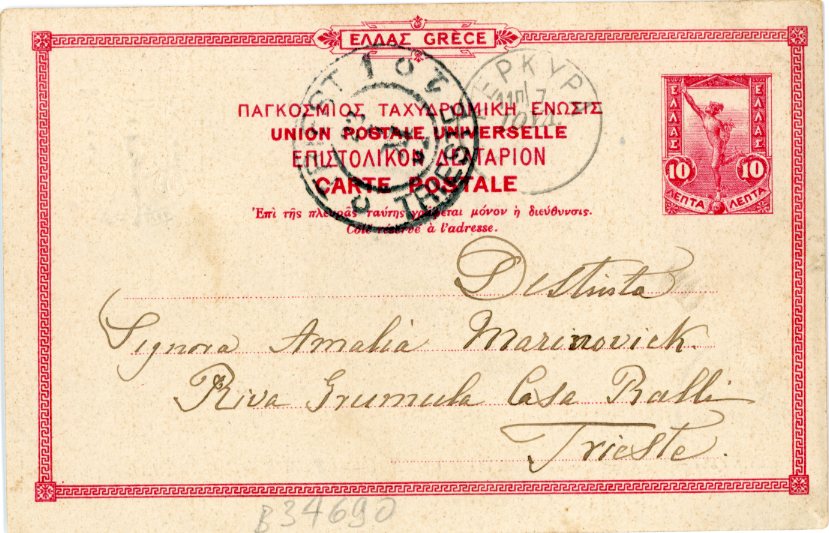 ΕΛΛΑΣ GRÈCE
ΠΑΓΚΟΣΜΙΟΣ ΤΑΧΥΔΡΟΜΙΚΗ ΕΝΩΣΙΣ
UNION POSTALE UNIVERSELLE
ΕΠΙΣΤΟΛΙΚΟΝ ΔΕΛΤΑΡΙΟΝ
CARTE POSTALE
Ἐπὶ τῆς πλευρᾶς ταύτης γράφεται μόνον ἡ διεύθυνσις.
Côté réservé à l'adresse.
ΚΕΡΚΥΡΑ
7
TRIEST
TRIESTE
ΕΛΛΑΣ ΕΛΛΑΣ
10 10
ΛΕΠΤΑ ΛΕΠΤΑ
Distinta
Signora Amalia Marinovich.
Riva Grumula Casa Ralli
Trieste.
B34690